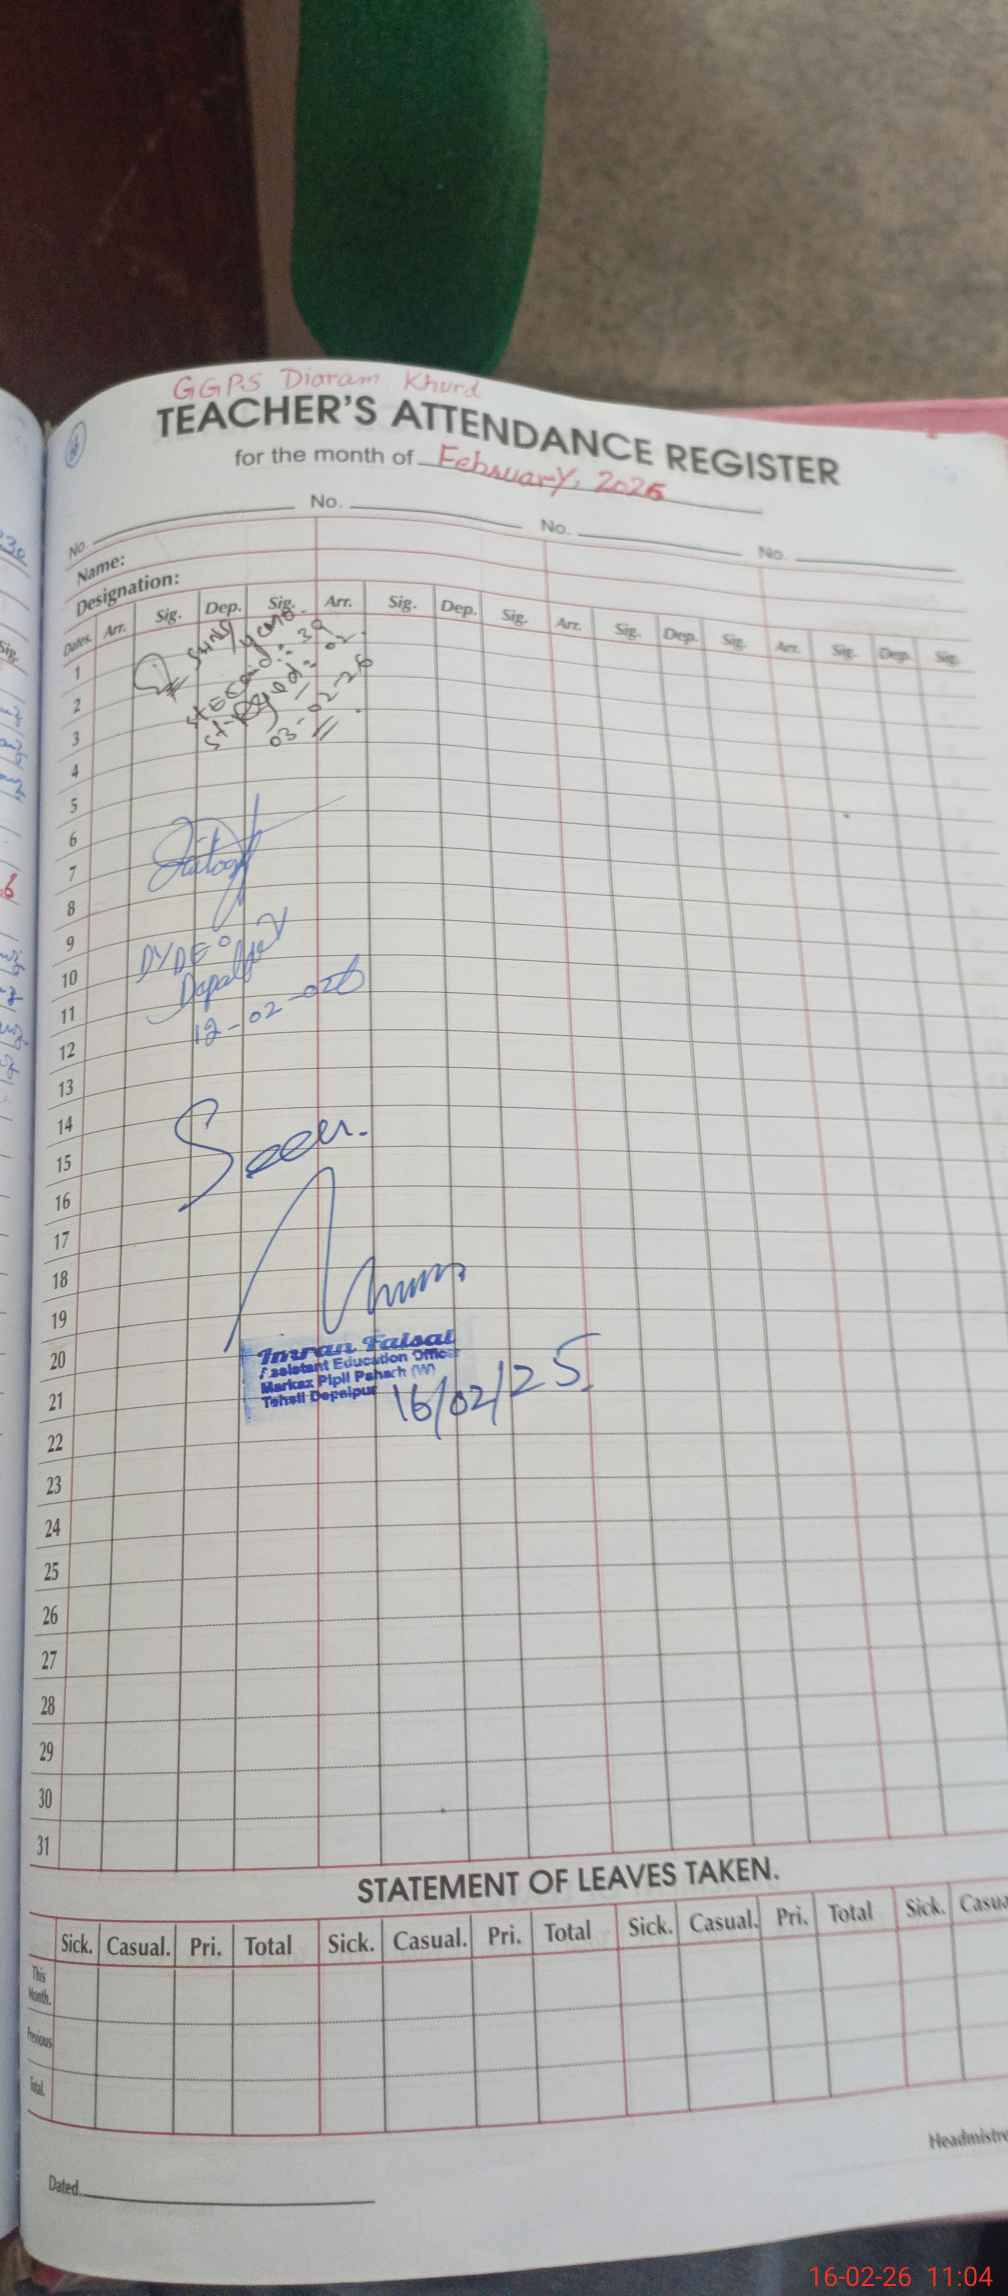 GGPS Diaram Khurd
TEACHER'S ATTENDANCE REGISTER
for the month of February, 2026
No. No. No. No.
Name:
Designation:
Dates. Arr. Sig. Dep. Sig. Arr. Sig. Dep. Sig. Arr. Sig. Dep. Sig. Arr. Sig. Dep. Sig.
1
2
3
03-02-26
4
5
6
7
8
9
DYDEO
10
Depalpur
11
12-02-026
12
13
14
Seen.
15
16
17
18
19
20
Imran Faisal
Assistant Education Office
Markaz Pipli Pahar h (W)
Tehsil Depalpur
16/02/25
21
22
23
24
25
26
27
28
29
30
31
STATEMENT OF LEAVES TAKEN.
Sick. Casual. Pri. Total Sick. Casual. Pri. Total Sick. Casual. Pri. Total Sick. Casua
This Month.
Previous
Total.
Headmistre
Dated.
16-02-26 11:04